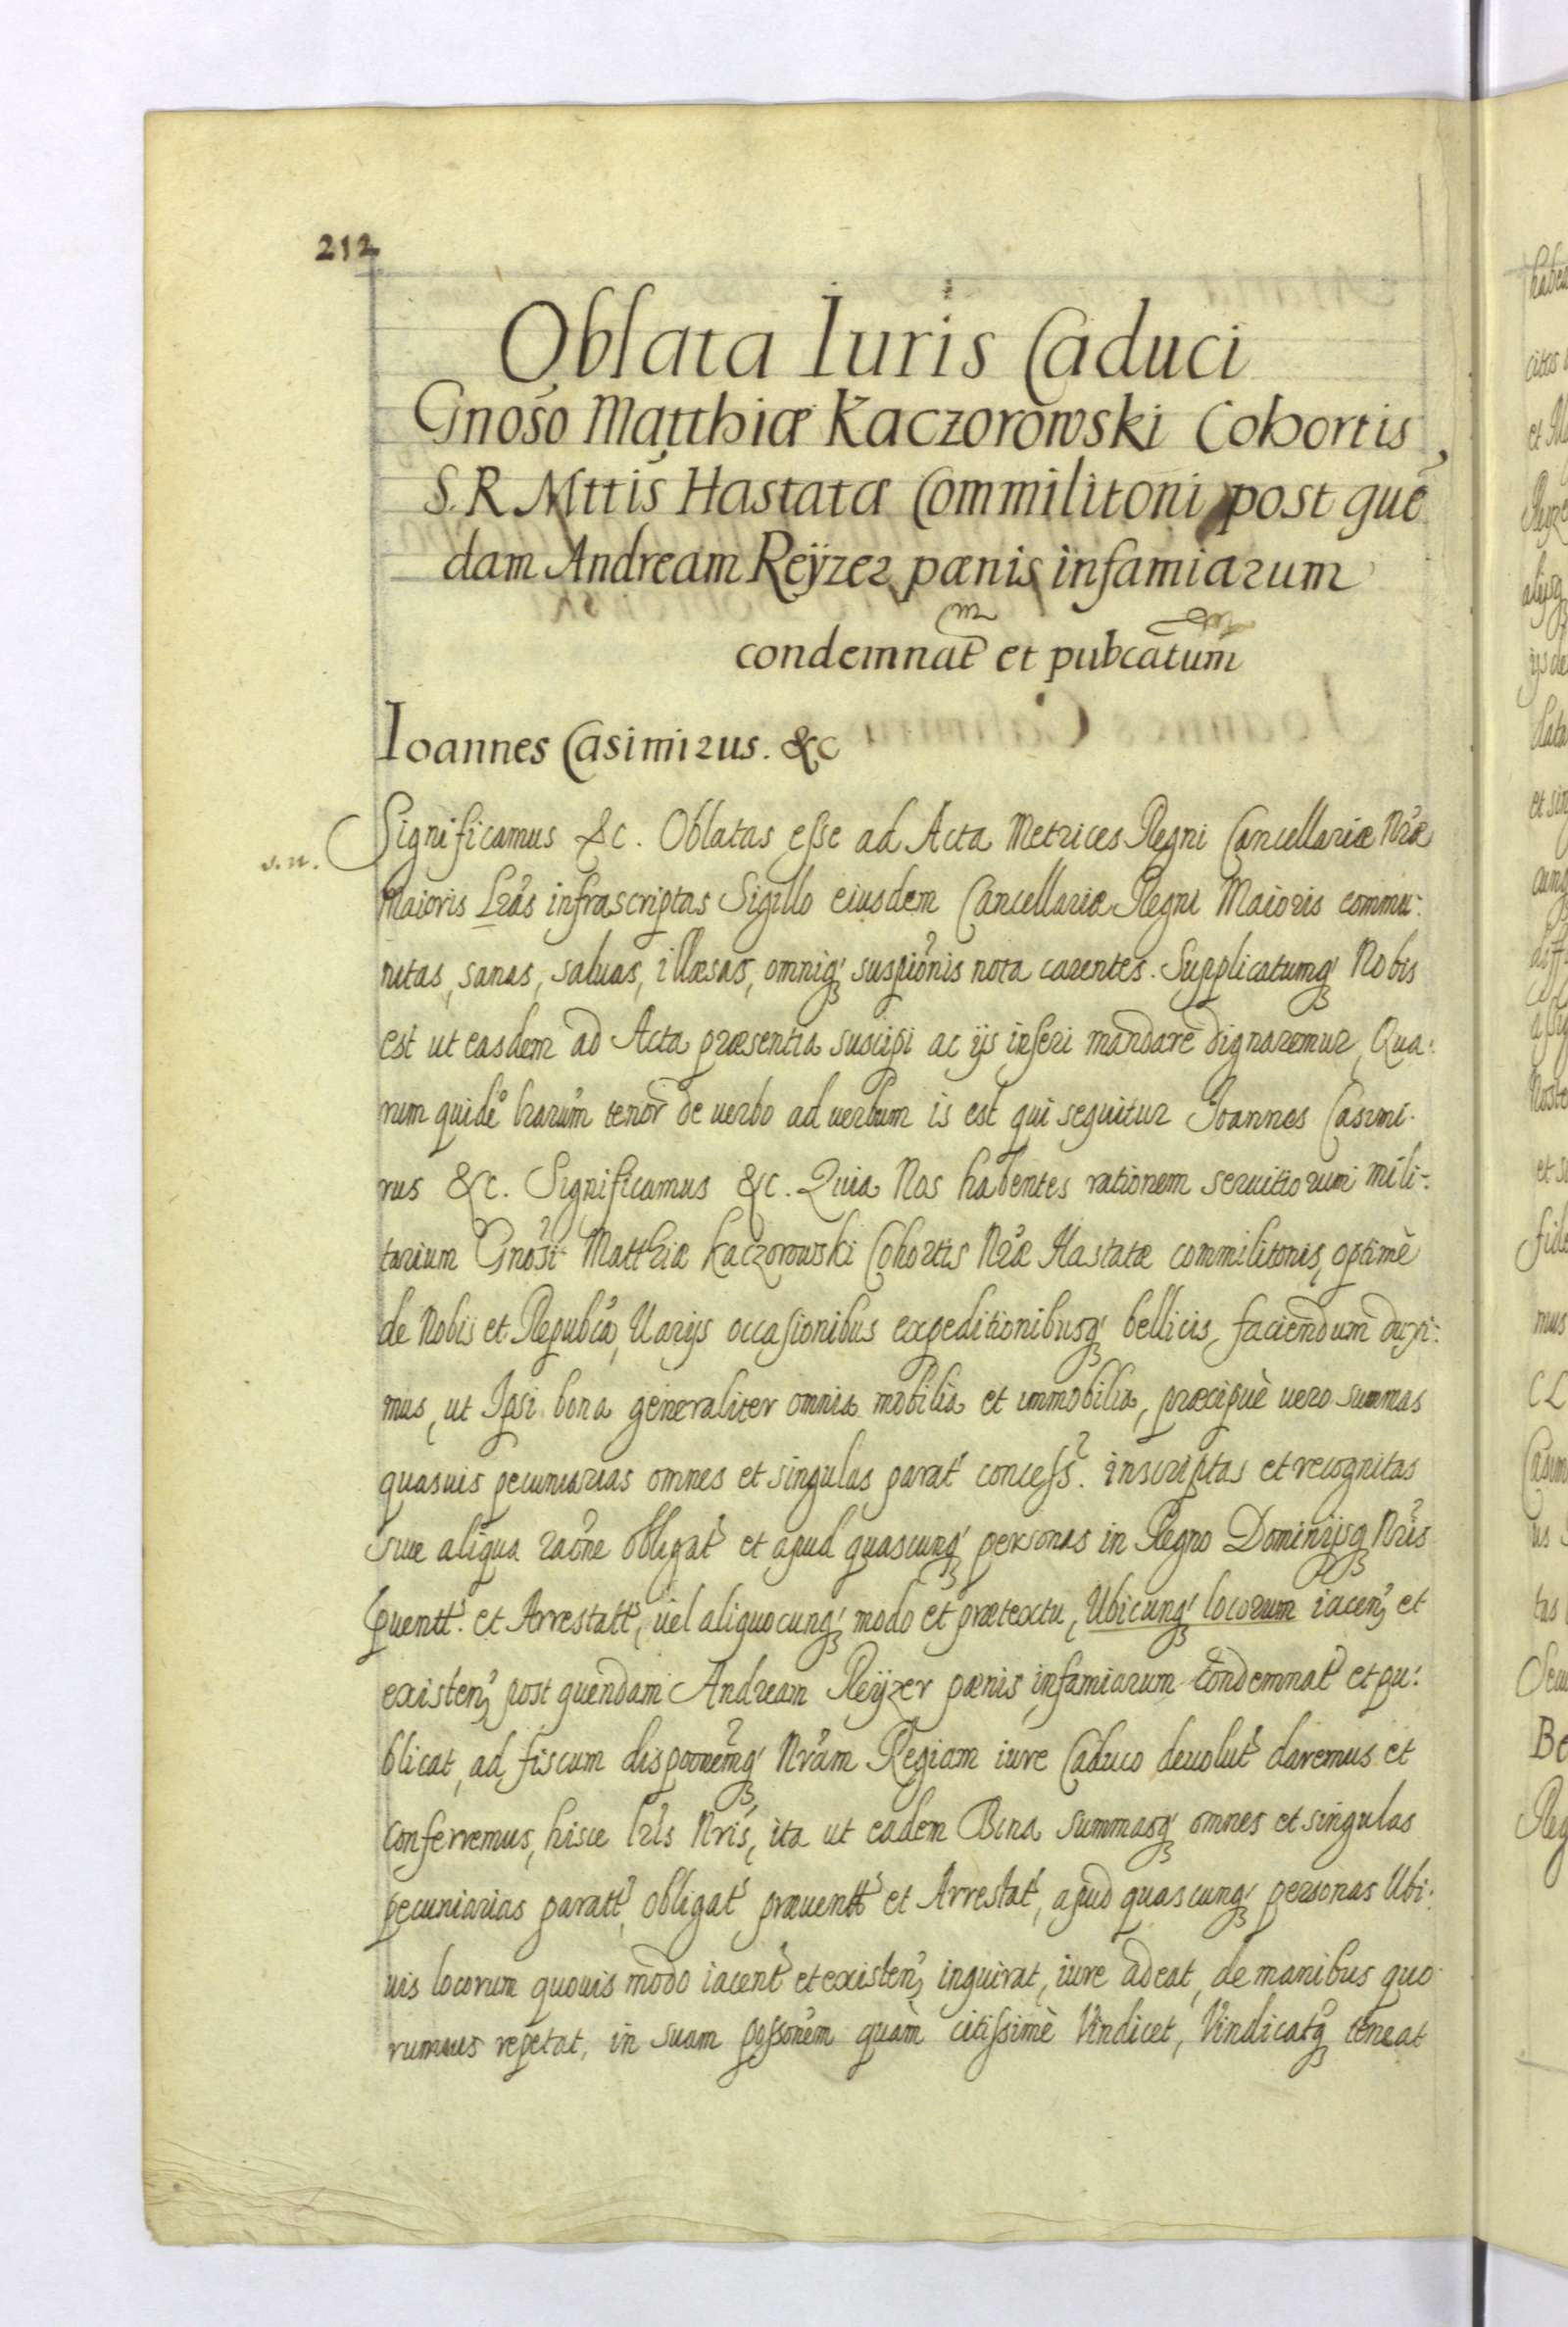 212
Oblata Iuris Caduci
Gnoso Matthiæ Kaczorowski Cohortis
S. R. Mttis Hastatæ Commilitoni post què
dam Andream Reÿzer pænis infamiarum
condemnat et pubcatum
Ioannes Casimirus. &c
s.n.
Significamus &c. Oblatas esse ad Acta Metrices Regni Cancellariæ Nræ
Maioris Lras infrascriptas Sigillo eiusdem Cancellariæ Regni Maioris commu:
nitas, sanas, saluas, illæsas, omniq suspionis nota carentes. Supplicatumq Nobis
est ut easdem ad Acta præsentia suscipi ac ijs inseri mandare dignaremur, Qua:
rum quidē lrarum tenor de uerbo ad uerbum is est qui sequitur Joannes Casimi:
rus &c. Significamus &c. Quia Nos habentes rationem seruitiorum mili-:
tarium Gnosi Matthiæ Kaczorowski Cohortis Nræ Hastatæ commilitonis, optimè
de Nobis et Repubca, Uarijs occasionibus expeditionibusq bellicis, faciendum duxi:
mus, ut Ipsi bona generaliter omnia mobilia et immobilia, præcipuè uero summas
quasuis pecuniarias omnes et singulas parat concess. inscriptas et recognitas
siue aliqua raone obligat et apud quascunq personas in Regno Dominijsq Nris
puentt. et Arrestatt, uel aliquocunq modo et prætextu, Ubicunq locorum iacen, et
existen, post quendam Andream Reÿzer pænis infamiarum condemnat et pu:
blicat, ad fiscum disponemq Nram Regiam iure Caduco deuolut daremus et
conferremus, hisce lris Nris, ita ut eadem Bona summasq omnes et singulas
pecuniarias paratt, obligat præuentt et Arrestat, apud quascunq personas Ubi:
uis locorum quouis modo iacent et existen, inquirat, iure adeat, de manibus quo
rumuis repetat, in suam possonem quàm citissimè Vindicet, Vindicatq teneat